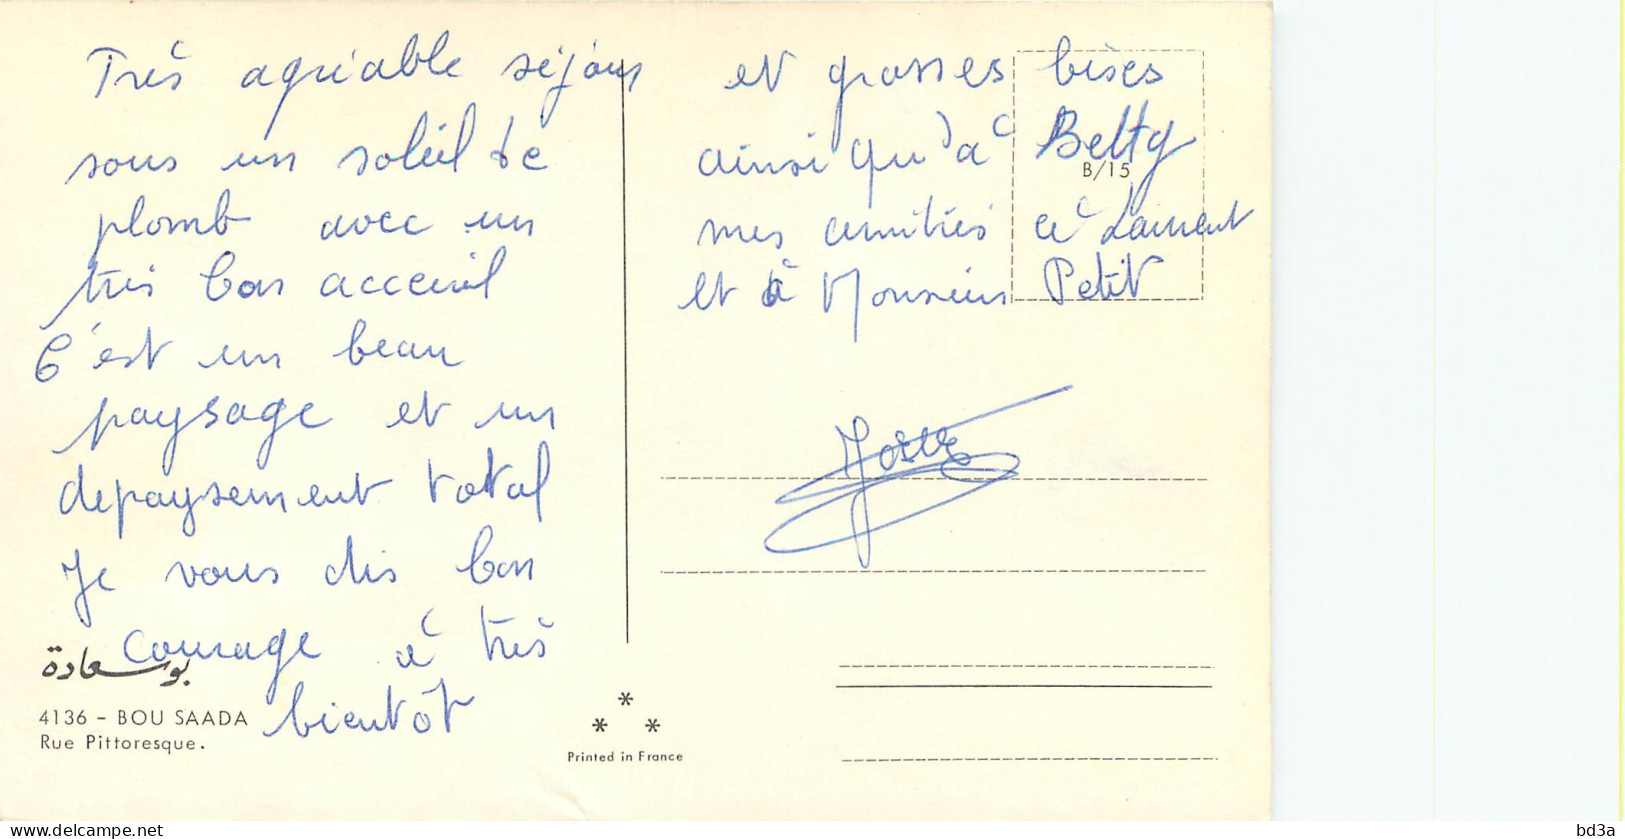 Très agréable séjour
sous un soleil de
plomb avec un
très bon acceuil
C'est un beau
paysage et un
depaysement total
Je vous dis bon
courage à très
bientôt
et grosses bises
ainsi qu'à Betty
mes amitiés à Laurent
et à Monsieur Petit
B/15
بوسعادة
4136 – BOU SAADA
Rue Pittoresque.
Printed in France
delcampe.net
bd3a